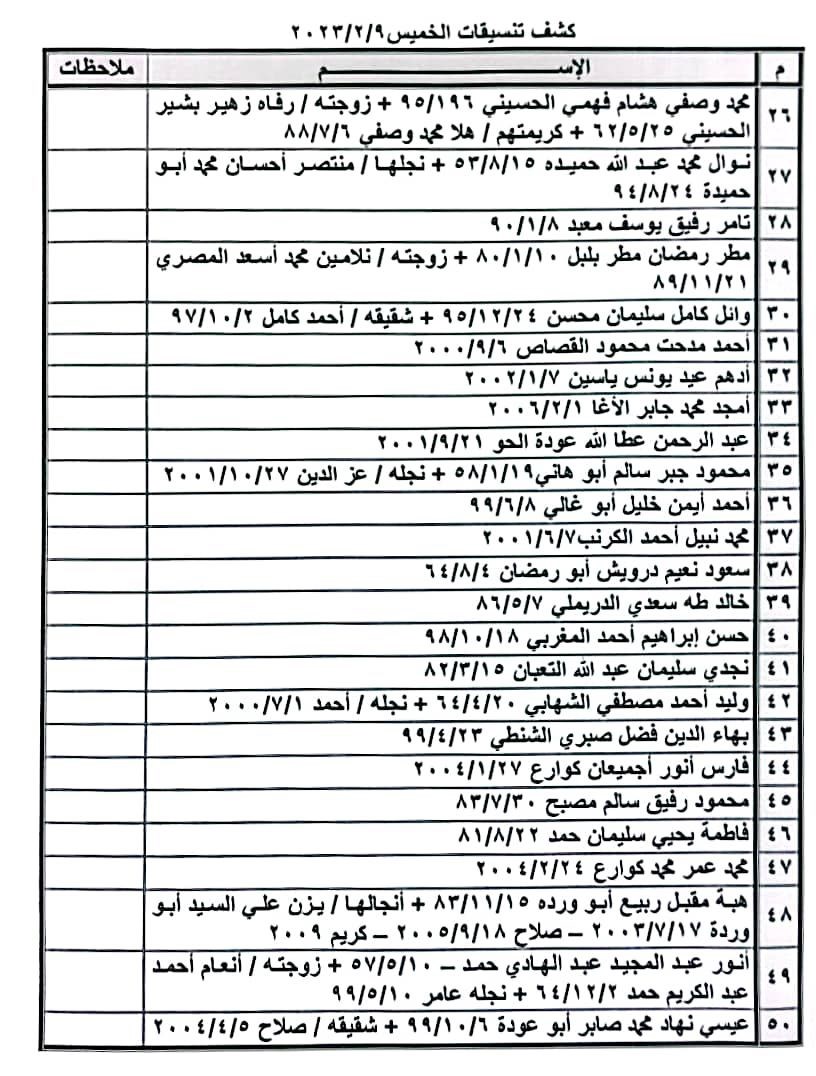 كشف تنسيقات الخميس ٢٠٢٣/٢/٩
م الإســـــــــــــــــــــم ملاحظات
٢٦ محمد وصفي هشام فهمي الحسيني ٩٥/١٩٦ + زوجته / رفاه زهير بشير
الحسيني ٦٢/٥/٢٥ + كريمتهم / هلا محمد وصفي ٨٨/٧/٦
٢٧ نوال محمد عبد الله حميده ٥٣/٨/١٥ + نجلها / منتصر أحسان محمد أبو
حميدة ٩٤/٨/٢٤
٢٨ تامر رفيق يوسف معبد ٩٠/١/٨
٢٩ مطر رمضان مطر بلبل ٨٠/١/١٠ + زوجته / نلامين محمد أسعد المصري
٨٩/١١/٢١
٣٠ وائل كامل سليمان محسن ٩٥/١٢/٢٤ + شقيقه / أحمد كامل ٩٧/١٠/٢
٣١ أحمد مدحت محمود القصاص ٢٠٠٠/٩/٦
٣٢ أدهم عيد يونس ياسين ٢٠٠٢/١/٧
٣٣ أمجد محمد جابر الأغا ٢٠٠٦/٢/١
٣٤ عبد الرحمن عطا الله عودة الحو ٢٠٠١/٩/٢١
٣٥ محمود جبر سالم أبو هاني٥٨/١/١٩ + نجله / عز الدين ٢٠٠١/١٠/٢٧
٣٦ أحمد أيمن خليل أبو غالي ٩٩/٦/٨
٣٧ محمد نبيل أحمد الكرنب٢٠٠١/٦/٧
٣٨ سعود نعيم درويش أبو رمضان ٦٤/٨/٤
٣٩ خالد طه سعدي الدريملي ٨٦/٥/٧
٤٠ حسن إبراهيم أحمد المغربي ٩٨/١٠/١٨
٤١ نجدي سليمان عبد الله التعبان ٨٢/٣/١٥
٤٢ وليد أحمد مصطفي الشهابي ٦٤/٤/٢٠ + نجله / أحمد ٢٠٠٠/٧/١
٤٣ بهاء الدين فضل صبري الشنطي ٩٩/٤/٢٣
٤٤ فارس أنور أجميعان كوارع ٢٠٠٤/١/٢٧
٤٥ محمود رفيق سالم مصبح ٨٣/٧/٣٠
٤٦ فاطمة يحيي سليمان حمد ٨١/٨/٢٢
٤٧ محمد عمر محمد كوارع ٢٠٠٤/٢/٢٤
٤٨ هبة مقبل ربيع أبو ورده ٨٣/١١/١٥ + أنجالها / يزن علي السيد أبو
وردة ٢٠٠٣/٧/١٧ – صلاح ٢٠٠٥/٩/١٨ – كريم ٢٠٠٩
٤٩ أنور عبد المجيد عبد الهادي حمد – ٥٧/٥/١٠ + زوجته / أنعام أحمد
عبد الكريم حمد ٦٤/١٢/٢ + نجله عامر ٩٩/٥/١٠
٥٠ عيسي نهاد محمد صابر أبو عودة ٩٩/١٠/٦ + شقيقه / صلاح ٢٠٠٤/٤/٥